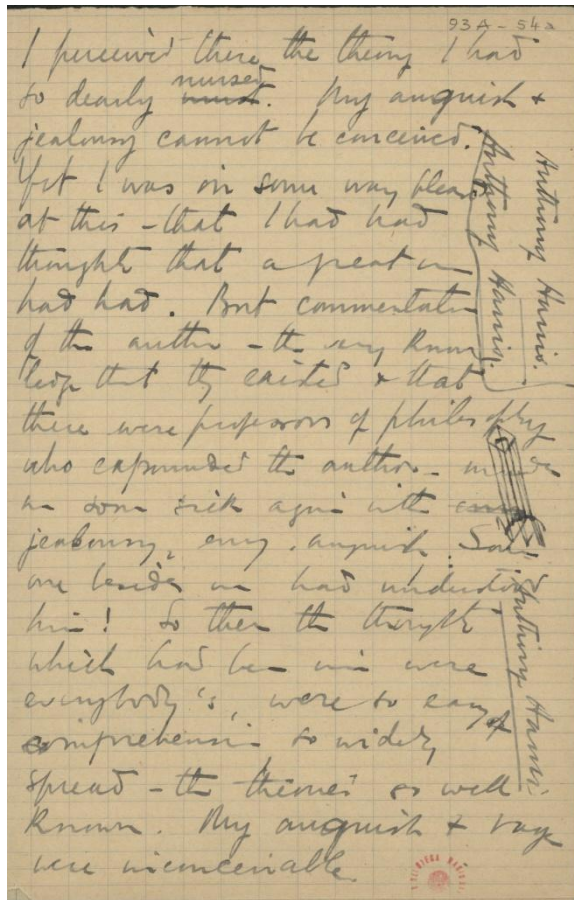 93A - 54a
I perceived there the theory I had
so dearly nursed. My anguish &
jealousy cannot be conceived.
Yet I was in some way pleased
at this - that I had had
thoughts that a great man
had had. But commentators
of the author - the very know-
ledge that they existed & that
there were professors of philosophy
who expounded the author - made
me soon sick again with envy
jealousy, envy, anguish. Some
one besides me had understood
him! So then the thoughts
which had been mine were
everybody's, were so easy of
comprehension so widely
spread - the theories so well
known. My anguish & rage
were inconceivable
Anthony Harris.
Anthony Harris.
Anthony Harris.
BIBLIOTECA NACIONAL